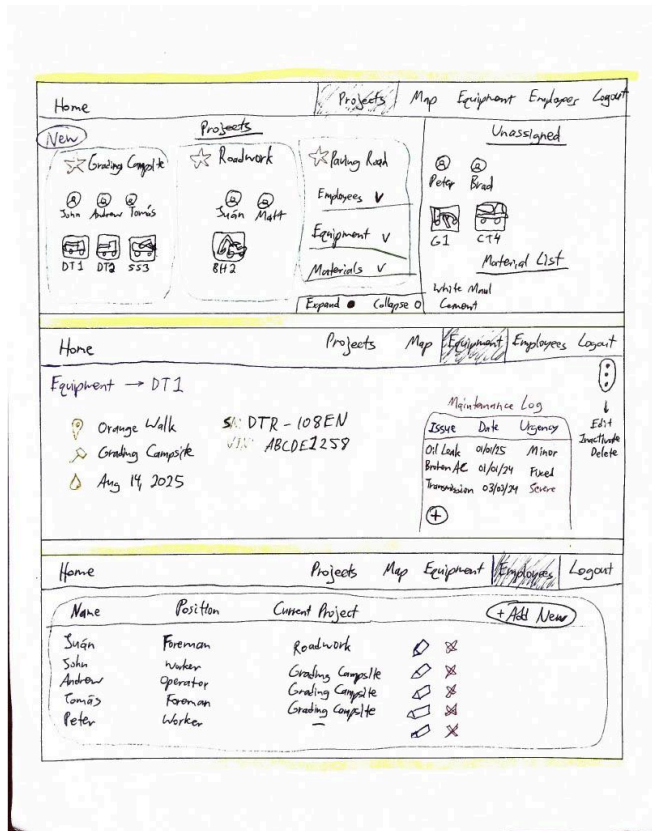 Home Projects Map Equipment Employees Logout
New
Projects
Grading Campsite
John Andrew Tomás
DT1 DT2 SS3
Roadwork
Juán Matt
BH2
Paving Road
Employees V
Equipment V
Materials V
Expand Collapse
Unassigned
Peter Brad
G1 CT4
Material List
White Marl
Cement
Home Projects Map Equipment Employees Logout
Equipment → DT1
Orange Walk
Grading Campsite
Aug 14, 2025
SN: DTR-108EN
VIN: ABCDE1258
Maintanance Log
Issue Date Urgency
Oil Leak 01/01/25 Minor
Broken AC 01/01/24 Fixed
Transmission 03/03/24 Severe
+
Edit
Inactivate
Delete
Home Projects Map Equipment Employees Logout
Name Position Current Project + Add New
Juán Foreman Roadwork
John Worker Grading Campsite
Andrew Operator Grading Campsite
Tomás Foreman Grading Campsite
Peter Worker —